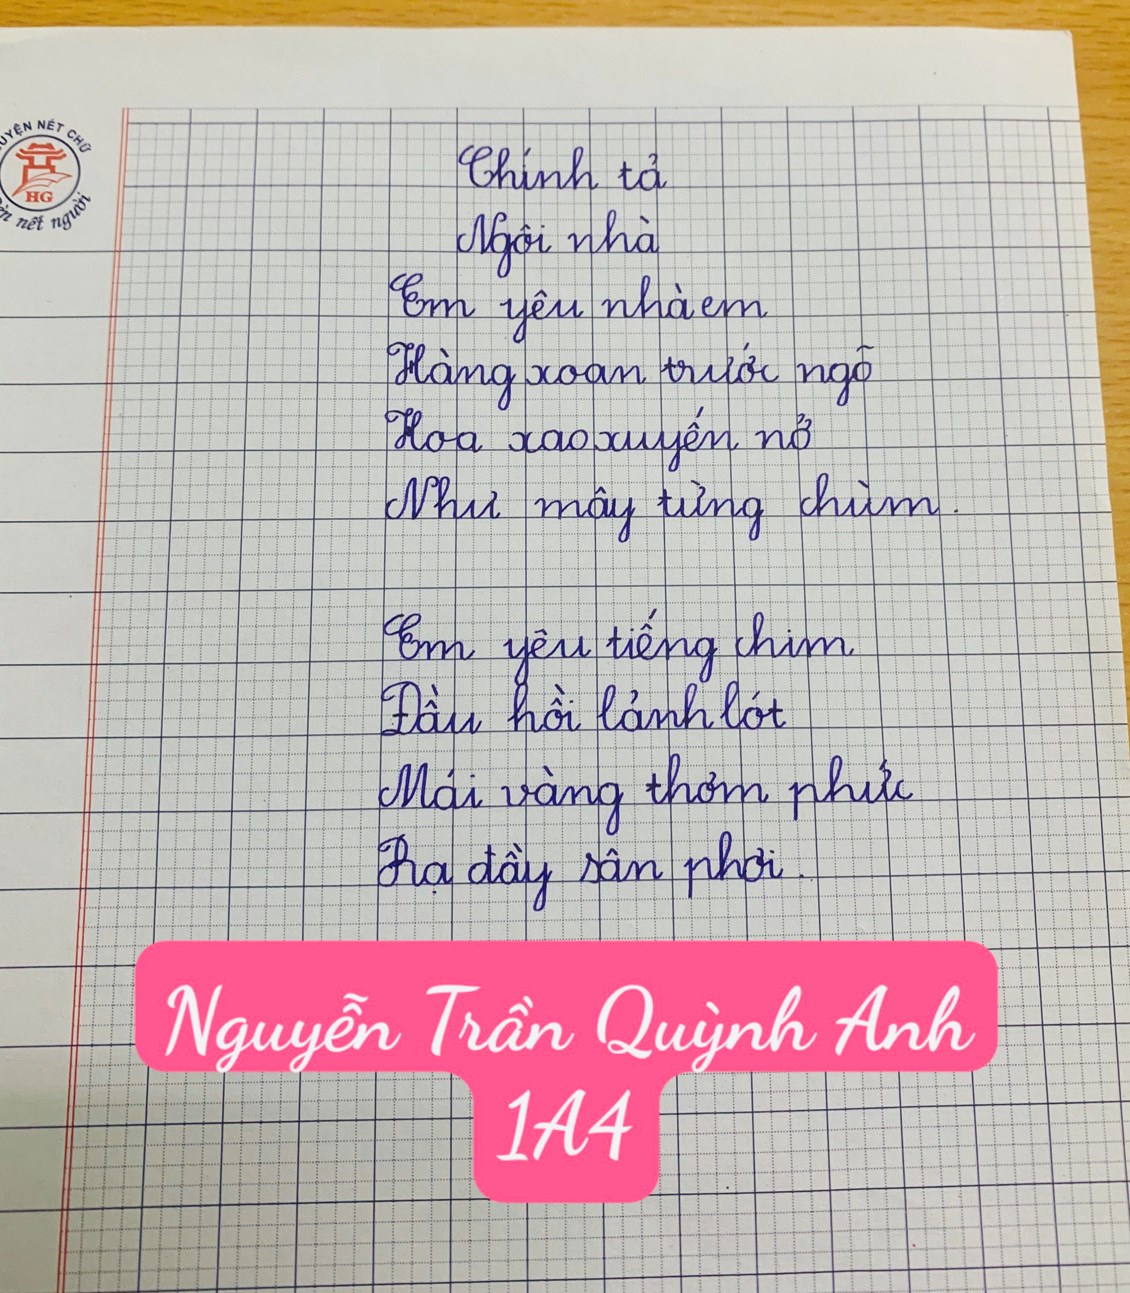 UYỆN NÉT CHỮ
HG
nết người
Chính tả
Ngôi nhà
Em yêu nhà em
Hàng xoan trước ngõ
Hoa xao xuyến nở
Như mây từng chùm.
Em yêu tiếng chim
Đầu hồi lảnh lót
Mái vàng thơm phức
Rạ đầy sân phơi.
Nguyễn Trần Quỳnh Anh
1A4